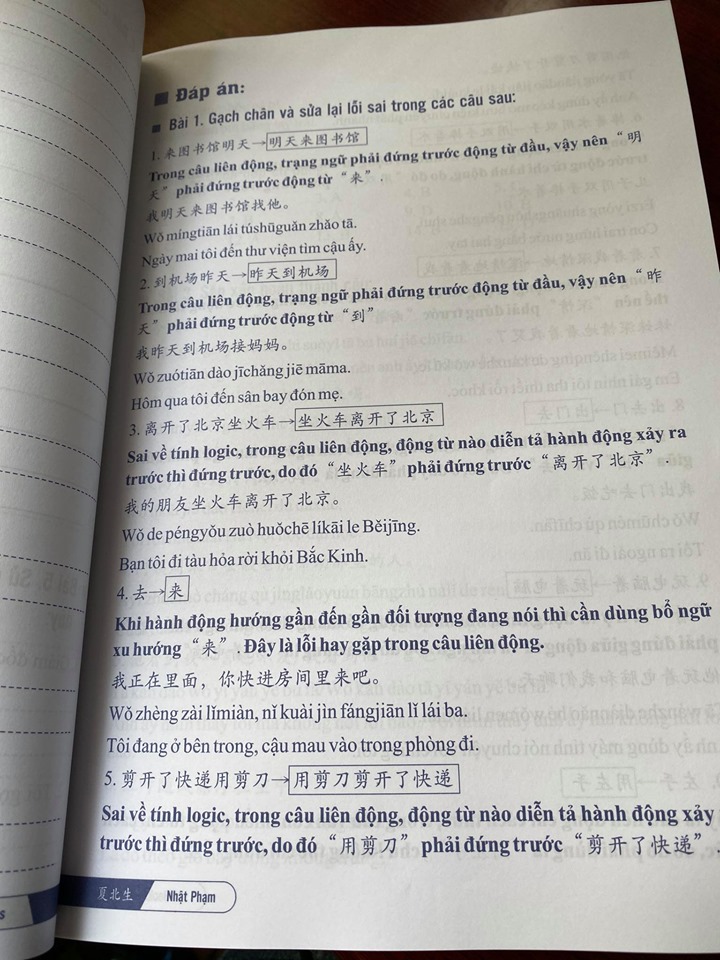 Đáp án:
Bài 1. Gạch chân và sửa lại lỗi sai trong các câu sau:
1. 来图书馆明天→明天来图书馆
Trong câu liên động, trạng ngữ phải đứng trước động từ đầu, vậy nên “明
天” phải đứng trước động từ “来”.
我明天来图书馆找他。
Wǒ míngtiān lái túshūguǎn zhǎo tā.
Ngày mai tôi đến thư viện tìm cậu ấy.
2. 到机场昨天→昨天到机场
Trong câu liên động, trạng ngữ phải đứng trước động từ đầu, vậy nên “昨
天” phải đứng trước động từ “到”
我昨天到机场接妈妈。
Wǒ zuótiān dào jīchǎng jiē māma.
Hôm qua tôi đến sân bay đón mẹ.
3. 离开了北京坐火车→坐火车离开了北京
Sai về tính logic, trong câu liên động, động từ nào diễn tả hành động xảy ra
trước thì đứng trước, do đó “坐火车” phải đứng trước “离开了北京”.
我的朋友坐火车离开了北京。
Wǒ de péngyǒu zuò huǒchē líkāi le Běijīng.
Bạn tôi đi tàu hỏa rời khỏi Bắc Kinh.
4. 去→来
Khi hành động hướng gần đến gần đối tượng đang nói thì cần dùng bổ ngữ
xu hướng “来”. Đây là lỗi hay gặp trong câu liên động.
我正在里面，你快进房间里来吧。
Wǒ zhèng zài lǐmiàn, nǐ kuài jìn fángjiān lǐ lái ba.
Tôi đang ở bên trong, cậu mau vào trong phòng đi.
5. 剪开了快递用剪刀→用剪刀剪开了快递
Sai về tính logic, trong câu liên động, động từ nào diễn tả hành động xảy
trước thì đứng trước, do đó “用剪刀” phải đứng trước “剪开了快递”.
夏北生 Nhật Phạm